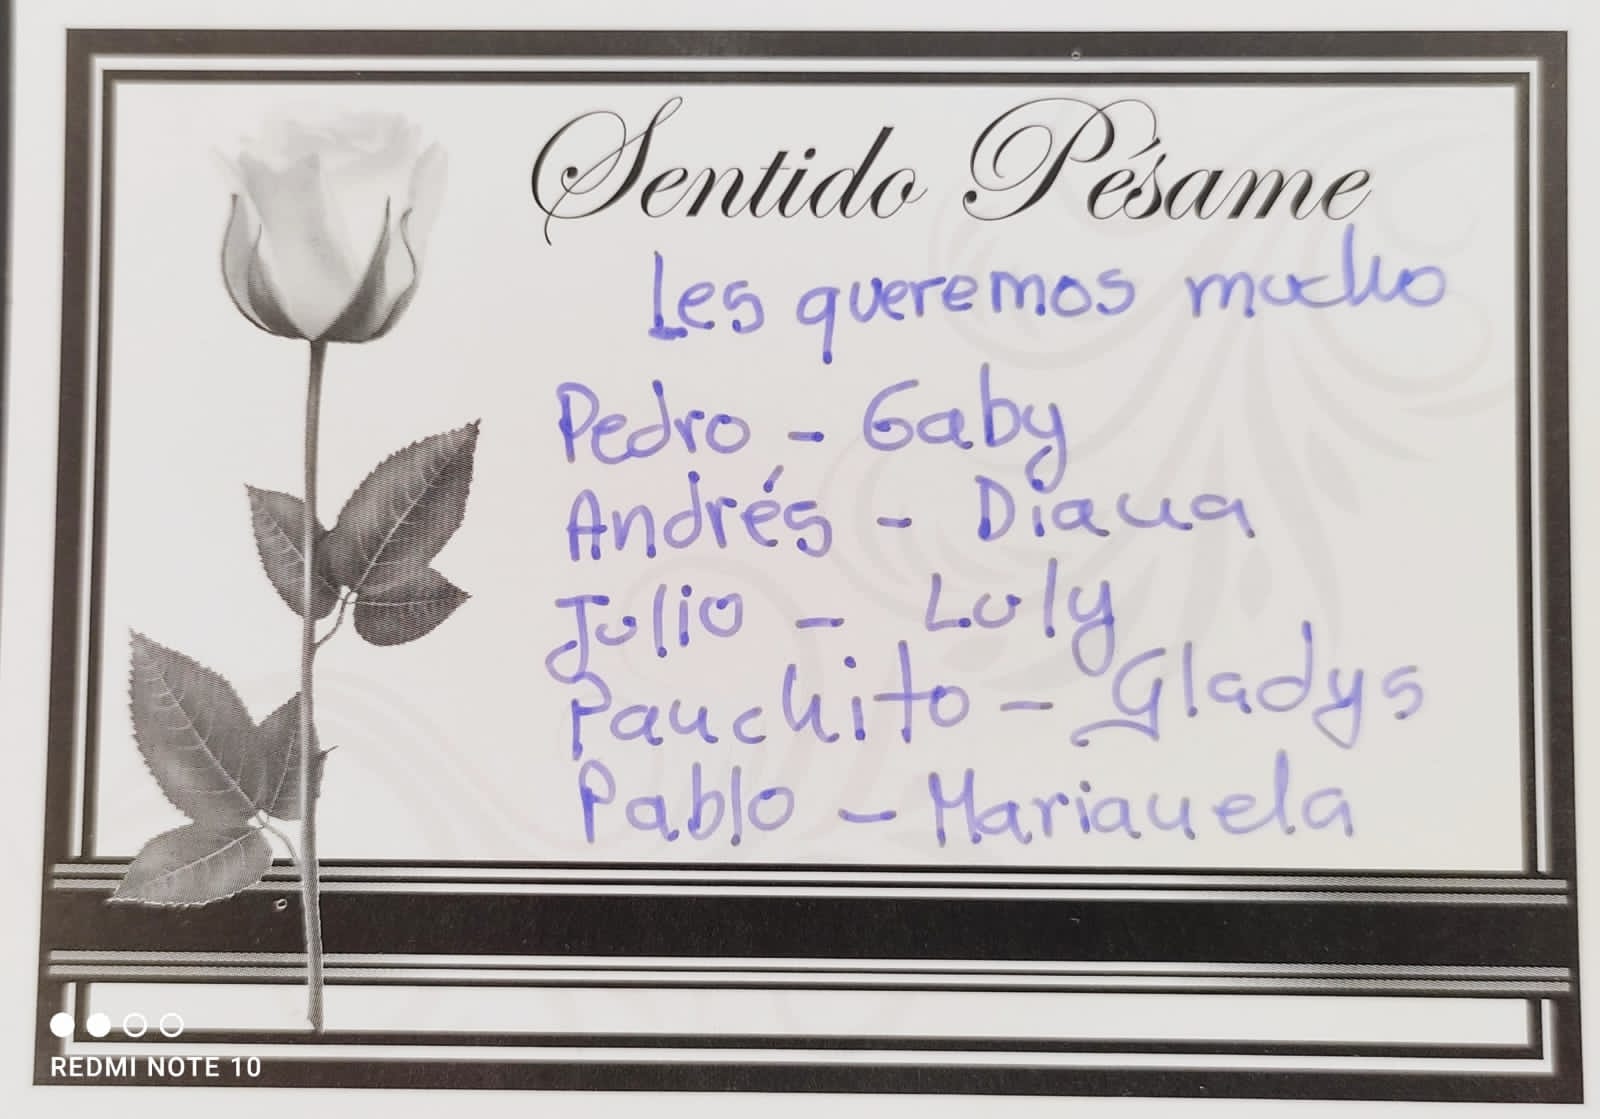 Sentido Pésame
Les queremos mucho
Pedro - Gaby
Andrés - Diana
Julio - Luly
Panchito - Gladys
Pablo - Marianela
REDMI NOTE 10